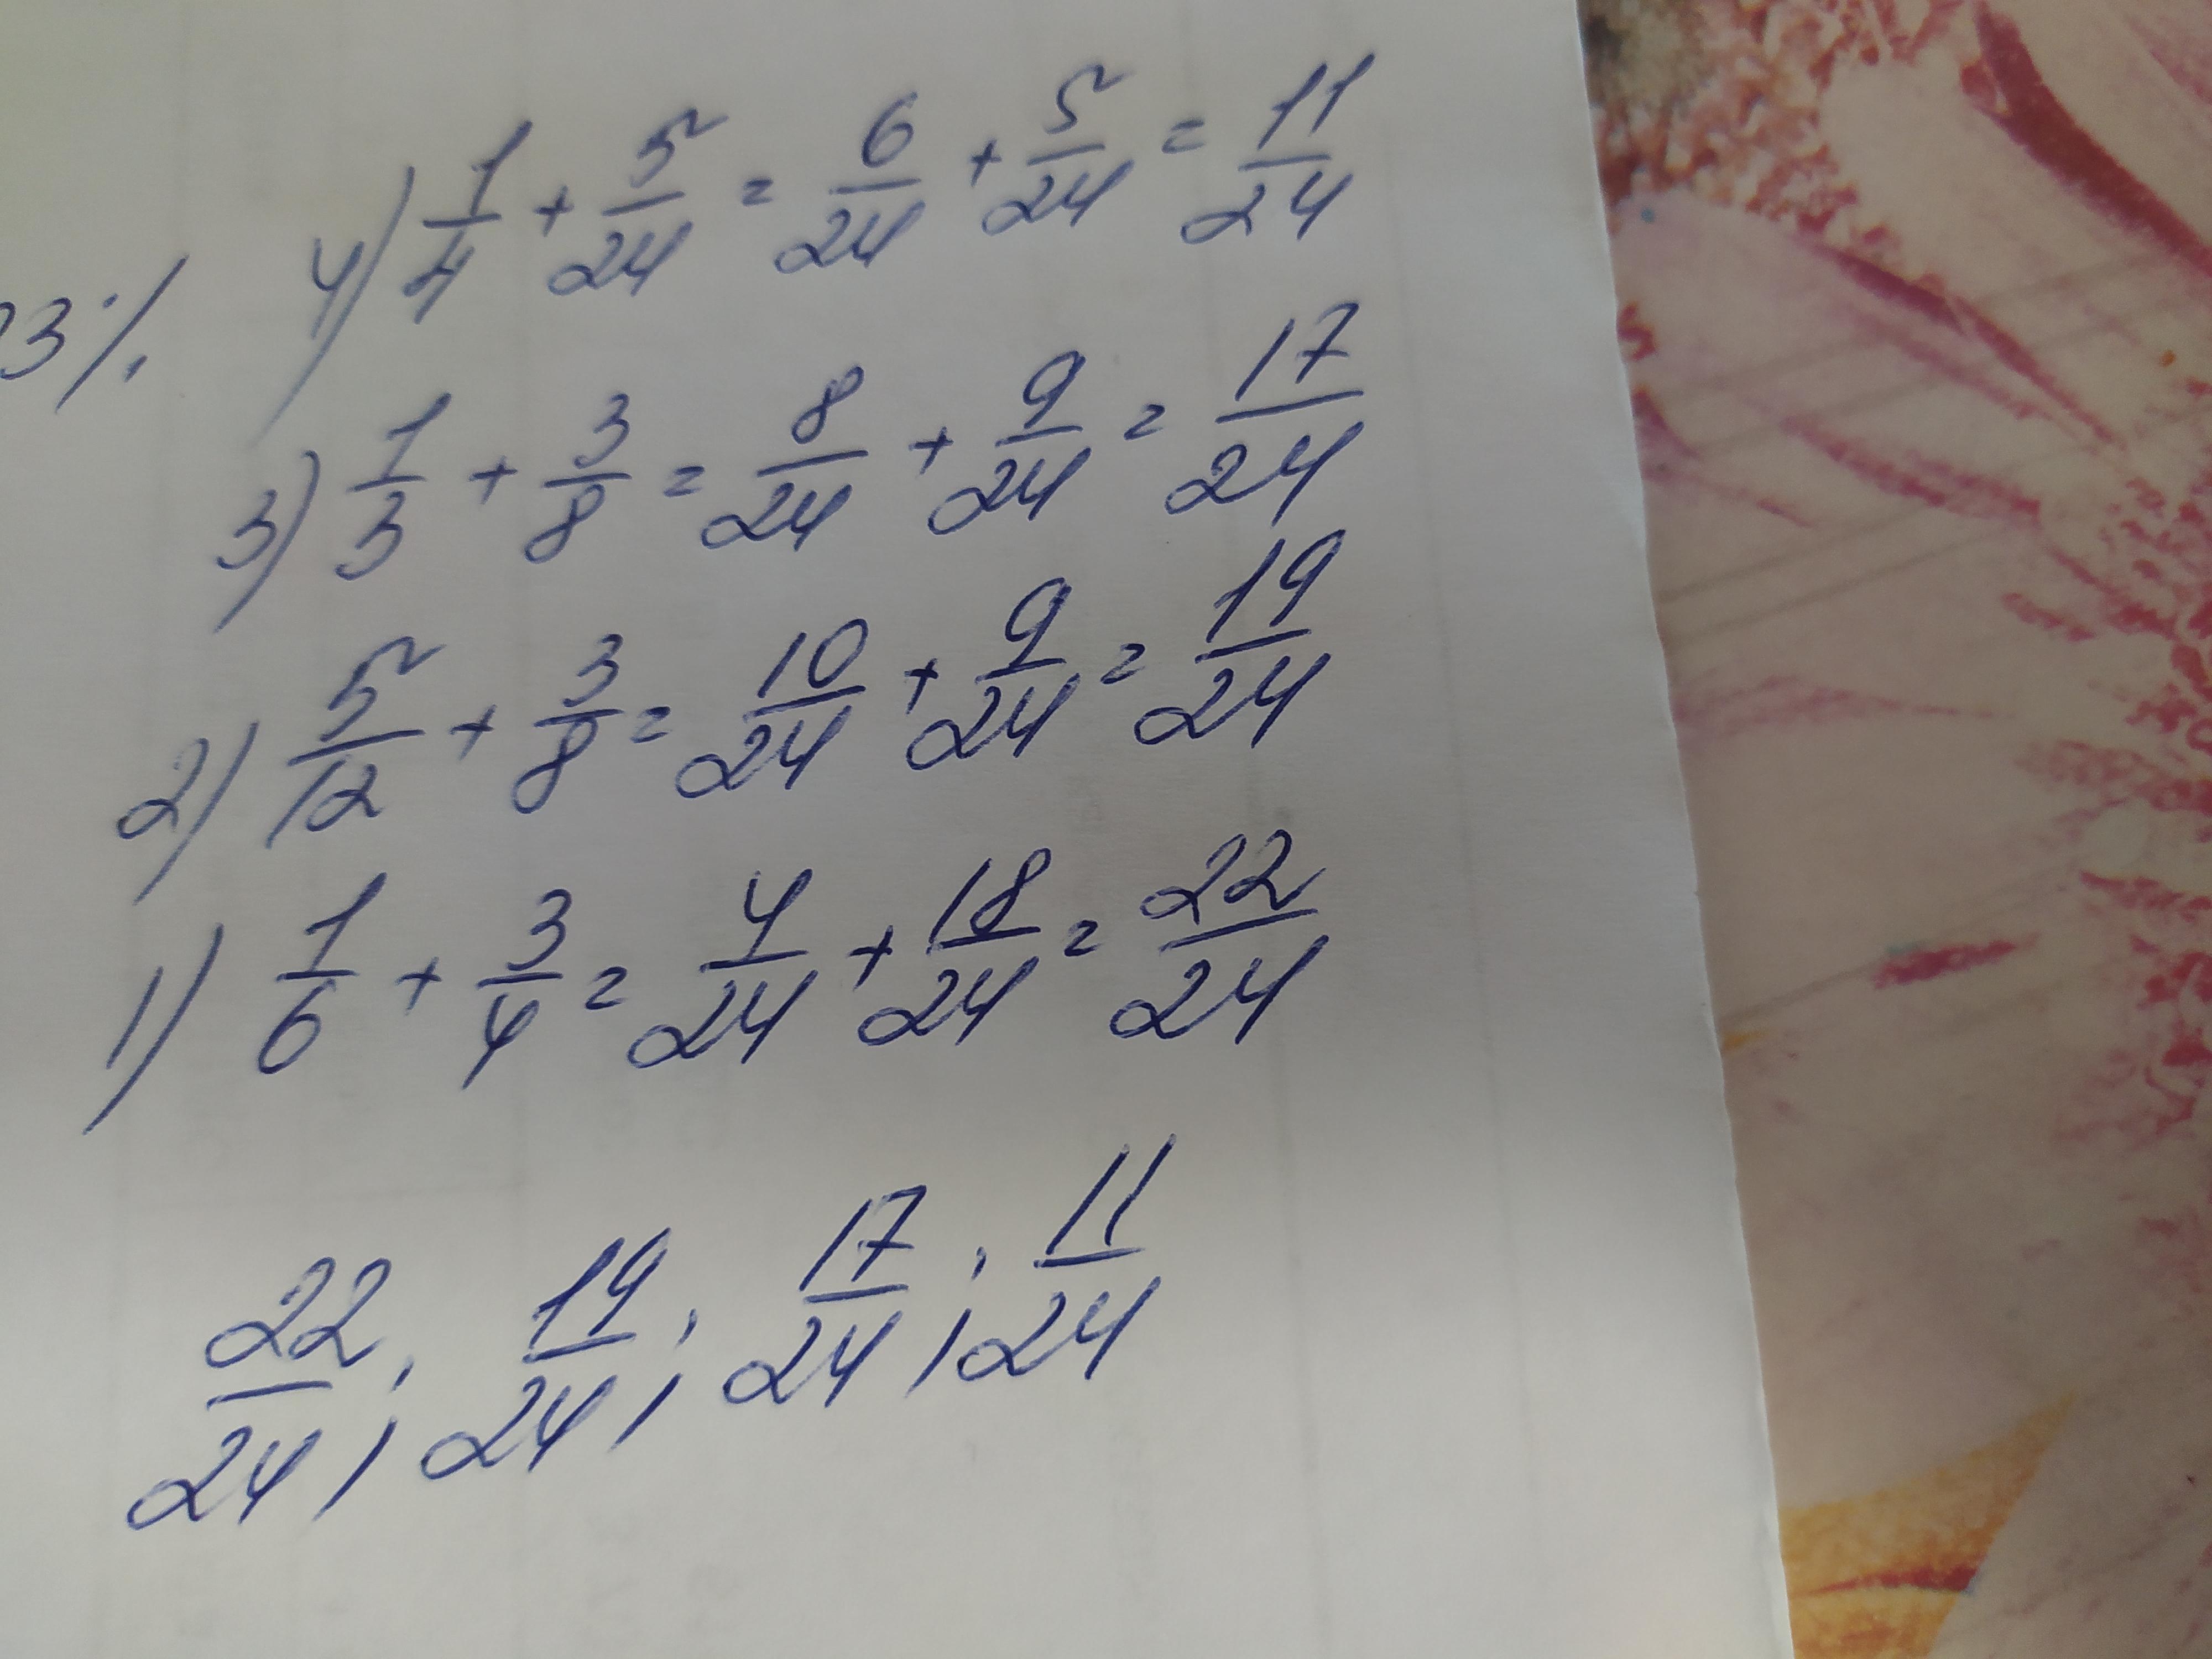 4) 1/4 + 5/24 = 6/24 + 5/24 = 11/24
3%
3) 1/3 + 3/8 = 8/24 + 9/24 = 17/24
2) 5/12 + 3/8 = 10/24 + 9/24 = 19/24
1) 1/6 + 3/4 = 4/24 + 18/24 = 22/24
22/24; 19/24; 17/24; 11/24